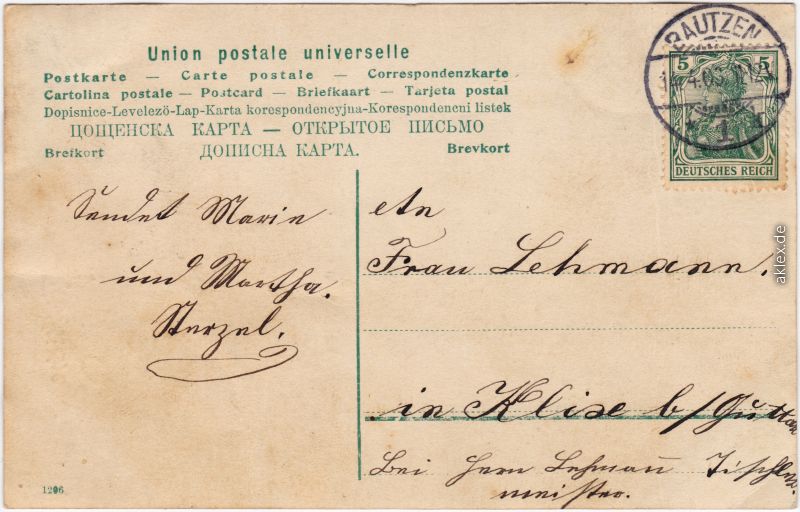 Union postale universelle
Postkarte — Carte postale — Correspondenzkarte
Cartolina postale — Postcard — Briefkaart — Tarjeta postal
Dopisnice-Levelezö-Lap-Karta korespondencyjna-Korespondencni listek
ЦОЩЕНСКА КАРТА — ОТКРЫТОЕ ПИСЬМО
Brefkort ДОПИСНА КАРТА. Brevkort
BAUTZEN
1
5 5
DEUTSCHES REICH
Sendet Marie
und Martha.
Sterzel.
An
Frau Lehmann.
in Klix b/Guttau
Bei Herrn Lehmann Tischler
meister.
1206
aklex.de